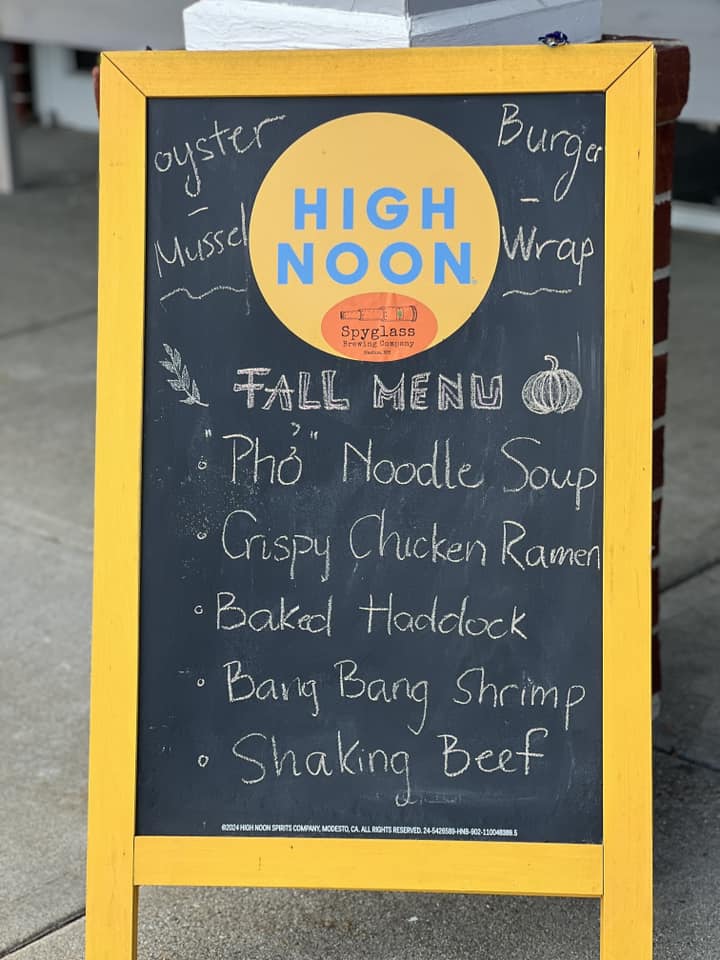 oyster
-
Mussel
Burger
-
Wrap
HIGH
NOON
Spyglass
Brewing Company
Nashua, NH
FALL MENU
• "Phở" Noodle Soup
• Crispy Chicken Ramen
• Baked Haddock
• Bang Bang Shrimp
• Shaking Beef
©2024 HIGH NOON SPIRITS COMPANY, MODESTO, CA. ALL RIGHTS RESERVED. 24-5426589-HNB-902-110048389.5